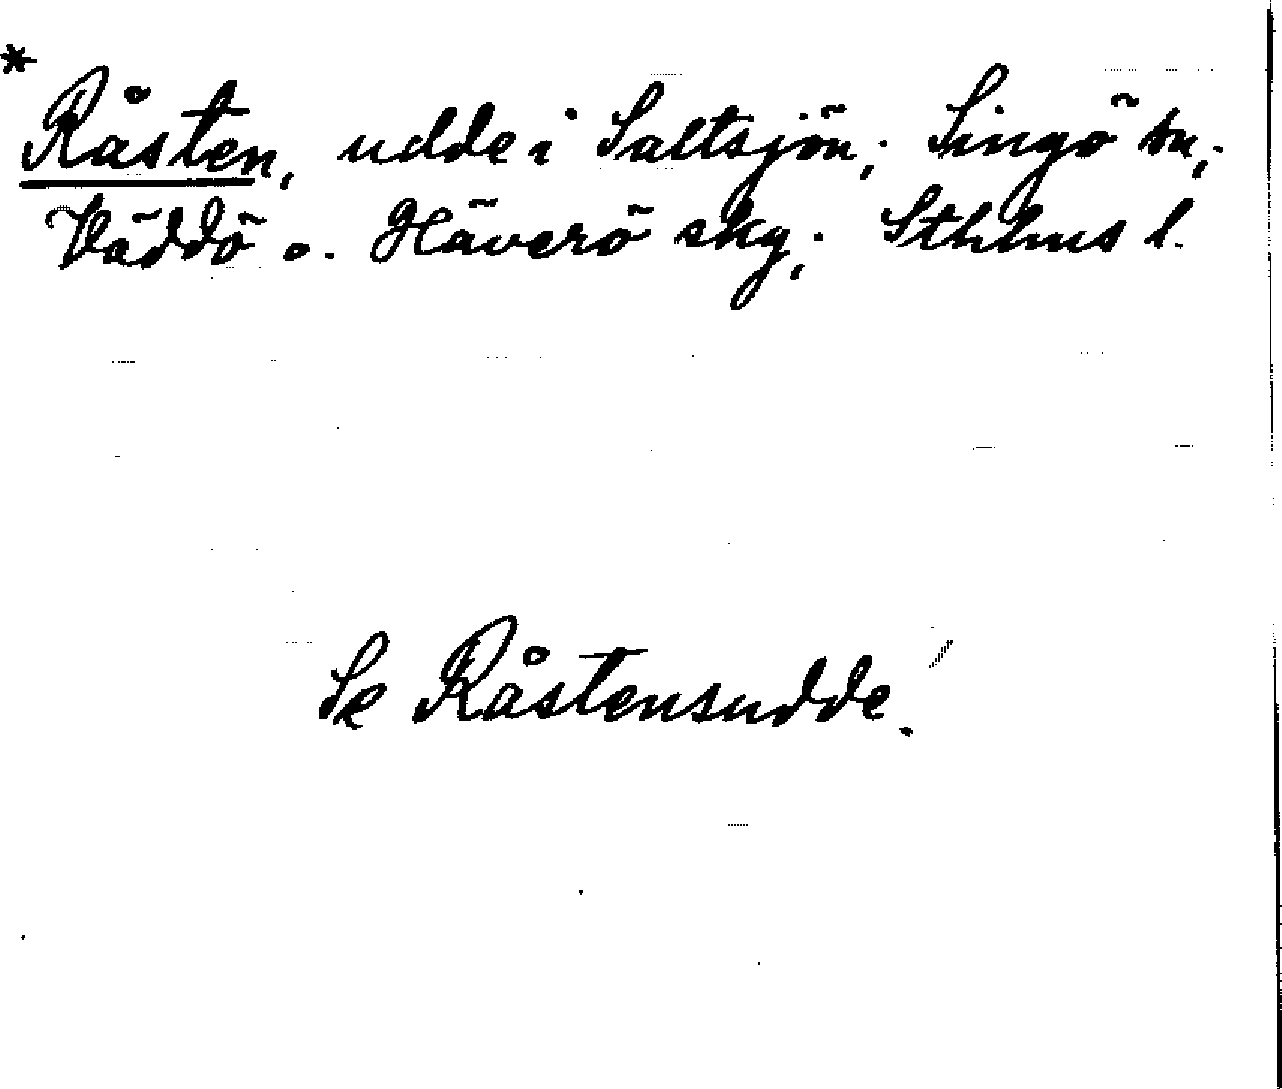 * Råsten, udde i Saltsjön; Singö sn;
Väddö o. Häverö skg; Sthlms l.
Se Råstensudde.